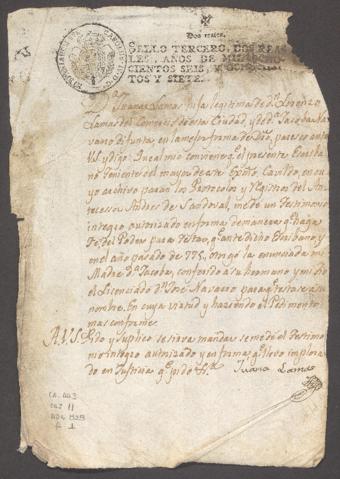 Dos reales.
SELLO TERCERO, DOS REA-
LES, AÑOS DE MIL OCHO-
CIENTOS SEIS, Y OCHOCIEN-
TOS Y SIETE.
CAROLUS IV D G
Juana Lamas hija legitima de Dn Lorenzo
Lamas del Comercio de esta Ciudad, y de Da Jacoba Na-
varro Difunta, en la mejor forma de Dro, paresco ante
V.S. y digo: Que al mio conviene q el presente Escriba-
no Teniente del mayor de este Exmo Cavildo, en cu-
yo archivo paran los Protocolos y Registros del An-
tecesor Andres de Sandoval, me dé un Testimonio
integro autorizado en forma de manera q haga
Fé, del Poder para Testar, q ante dicho Escribano, y
en el año pasado de 775, otorgó la enunciada mi
Madre Da Jacoba, conferido a su hermano y mi tio
el Licenciado Dn José Navarro para q testase a su
nombre. En cuya virtud y haciendo el Pedimento
mas conforme.
A.V.S. Pido y Suplico se sirva mandar se me dé el Testimo-
nio integro autorizado y en forma, q llevo implora-
do en Justicia q pido &a
Juana Lamas
CA. GO3
CAJ 11
f. 1